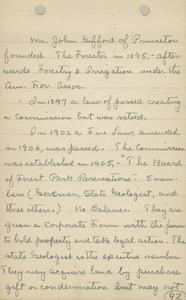 Mr. John Gifford of Princeton
founded The Forester in 1895, - after-
wards Forestry & Irrigation under the
Am. For. Assoc.
In 1897 a law of passed creating
a Commission but was vetoed.
In 1902 a Fire Law, amended
in 1906, was passed. The Commission
was established in 1905, - "The Board
of Forest Park Reservations" 5 mem-
bers (Governor, State Geologist, and
three others.) No Salaries. They are
given a Corporate Form with the power
to hold property and take legal action. The
state Geologist is the executive member.
They may acquire land by purchase
gift or condemnation but may not